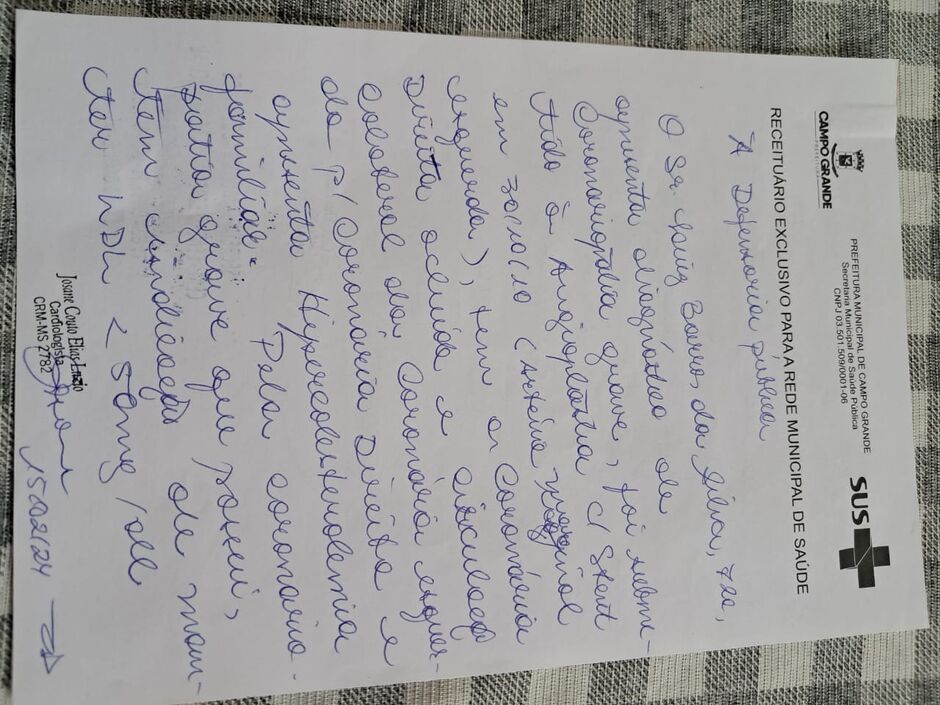 CAMPO GRANDE
PREFEITURA MUNICIPAL DE CAMPO GRANDE
Secretaria Municipal de Saúde Pública
CNPJ 03.501.509/0001-06
SUS
RECEITUÁRIO EXCLUSIVO PARA A REDE MUNICIPAL DE SAÚDE
A Defensoria pública
O Sr. Luiz Barros da Silva, 72a,
apresenta diagnóstico de
Coronariopatia grave, foi subme-
tido à Angioplastia c/ Stent
em (Artéria
esquerda), tem a Coronária
Direita ocluida e circulação
Colateral da Coronária esquer-
da p/ Coronária Direita e
apresenta Hipercolesterolemia
familiar. Pela coronario-
patia grave que possui,
tem indicação de man-
ter LDL < 50mg/dl
Josane Couto Elias
Cardiologista
CRM-MS 2782
15/02/24